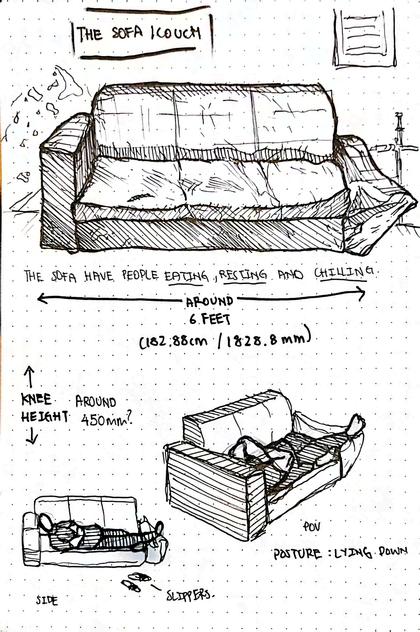 THE SOFA /COUCH
THE SOFA HAVE PEOPLE EATING, RESTING AND CHILLING.
AROUND
6 FEET
(182.88cm / 1828.8 mm)
KNEE AROUND
HEIGHT 450mm?
POV
POSTURE : LYING DOWN
SLIPPERS.
SIDE